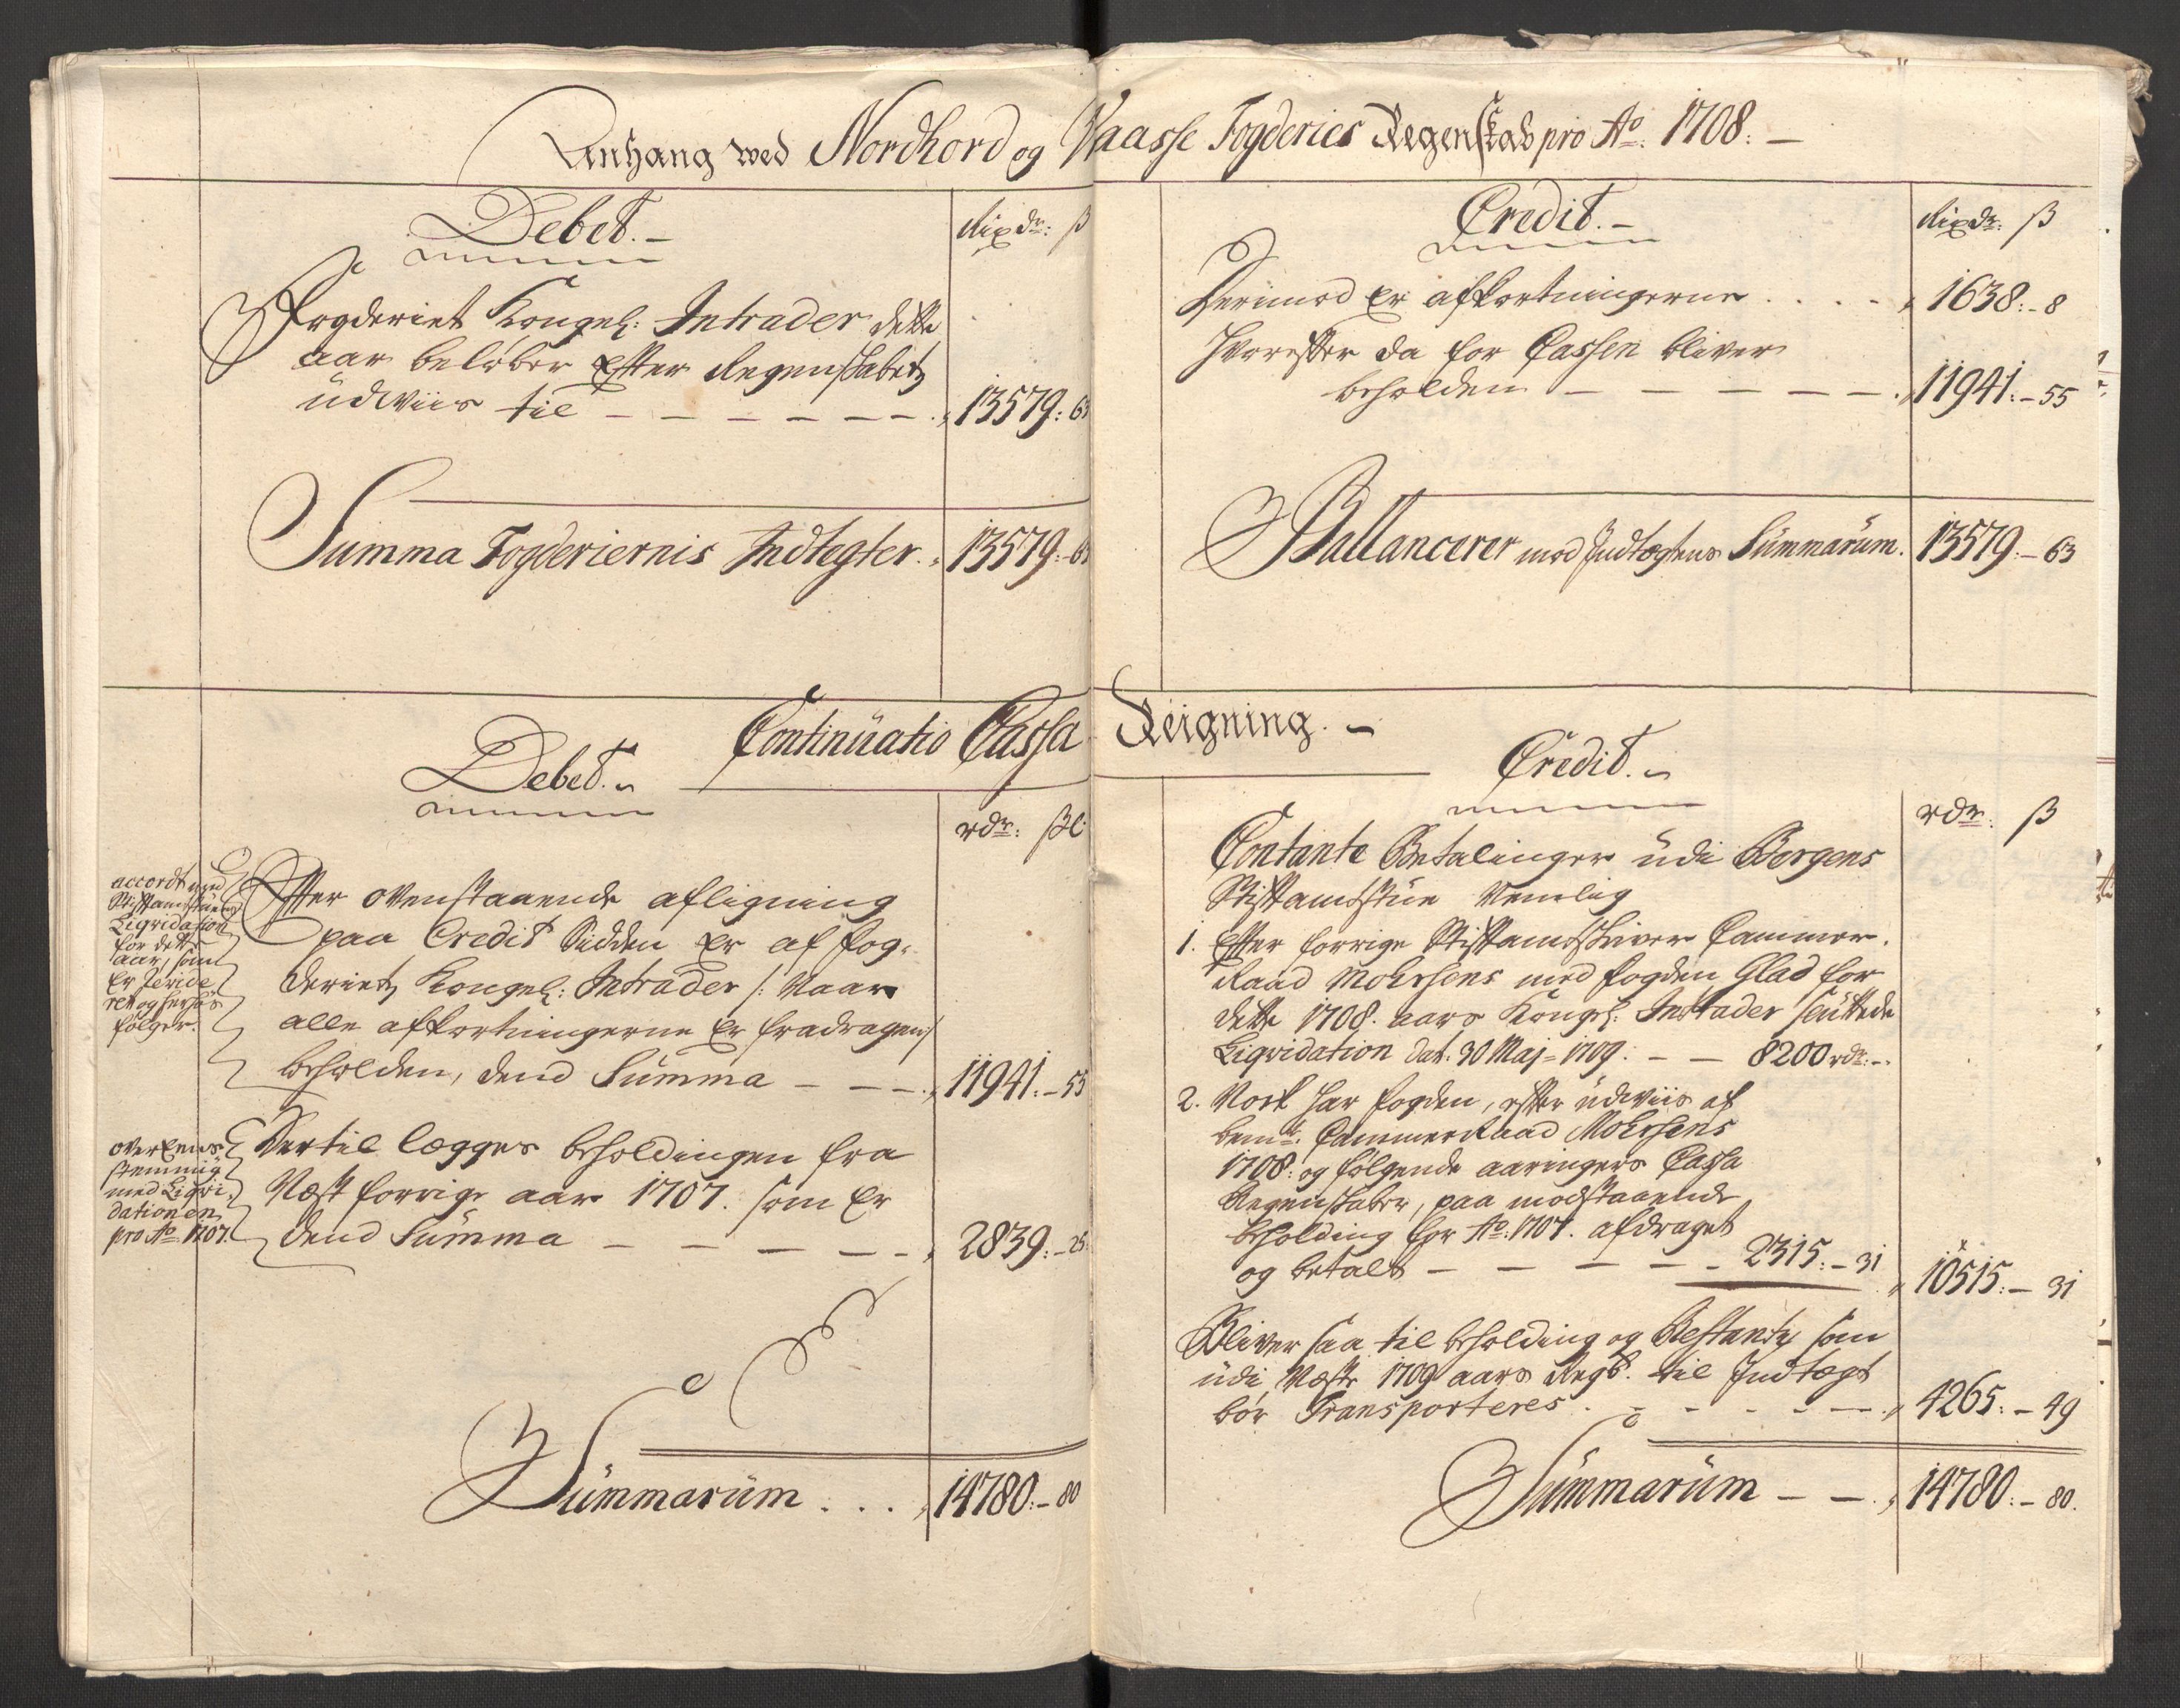 Anhang wed Nordhord og Waasse Fogderies Regenskab pro Ao: 1708. –
Debet. –
Rixdr: β
Fogderiet Kongel: Intrader dette
aar beløber Efter Regenskabetz
udwiis til – – – – – – 13579: 63
Summa Fogderiernis Indtegter. 13579: – 63
Credit. –
Rixdr: β
Derimod Er afkortningerne . . . . 1638: – 8
Hvorefter da for Cassen bliver
beholden – – – – – 11941: – 55
Ballancerer mod Indtegtens Summarum. 13579: – 63
Continuatio Cassa Reigning. –
Debet.
rdr: βl
accordt med
Stiftamtstuens
Liqvidation
for dette
aar, som
Er
og
følger.
Efter ovenstaaende afligning
paa Credit Sidden Er af fog-
derietz Kongel: Intrader /: Naar
alle afkortningerne Er fradragen :/
beholden, dend Summa – – – 11941: – 55
overEens
stemmig
med Liqvi-
dationen
pro Ao 1707.
Dertil legges beholdingen fra
Nest forrige aar 1707. som Er
dend Summa – – – – – 2839: – 25
Summarum . . . 14780: – 80
Credit.
rdr: β
Contante Betalinger udi Bergens
Stiftamtstue Nemlig
1. Efter forrige Stiftamtskriver Cammer-
Raad Mohrsens med fogden Glad for
dette 1708. aars Kongel: Intrader sluttede
Liqvidation dat: 30 Maj 1709: – – 8200 rdr: –
2. Nock har fogden, efter udwiis af
bemte: CammerRaad Mohrsens
1708: og følgende aaringers Cassa
Regenskaber, paa modstaaende
beholding for Ao: 1707. afdraget
og betalt – – – – – 2315: – 31 10515: – 31
Bliver saa til beholding og Restantz som
udi Neste 1709 aars Regb. til Indtegt
bør Transporteres . – – – – – 4265: – 49
Summarum – – 14780: – 80.